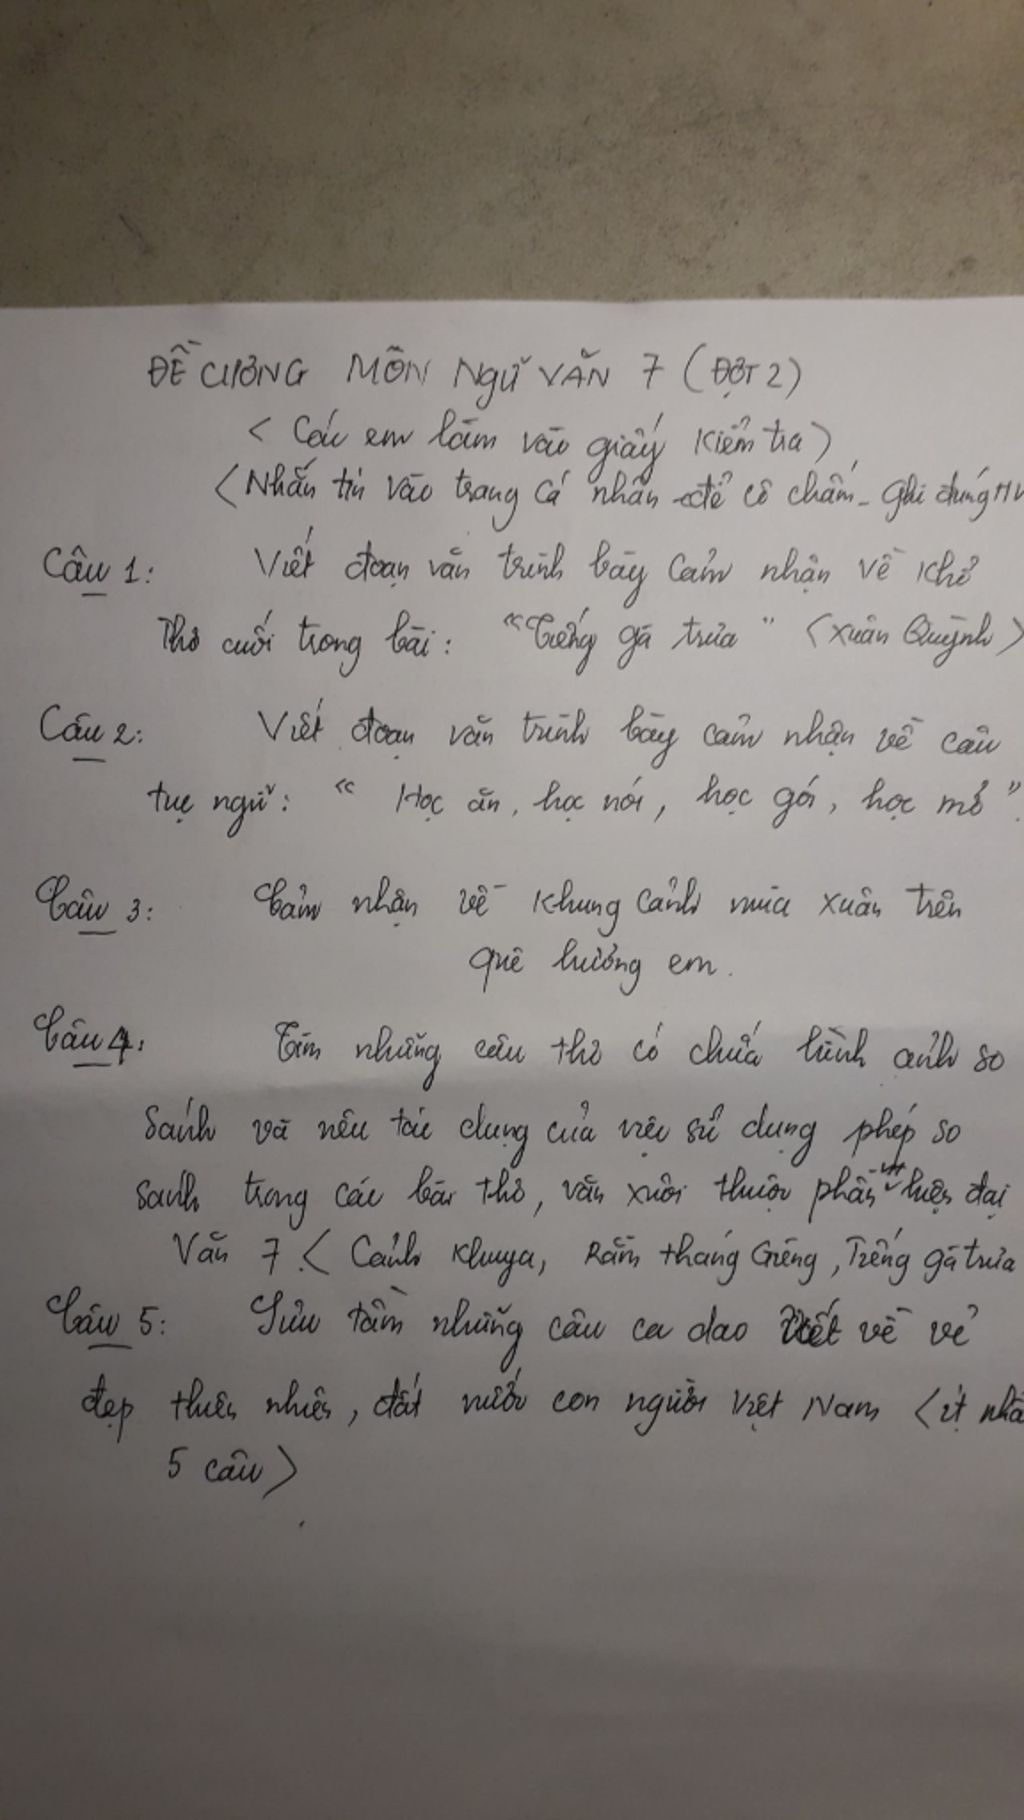 ĐỀ CƯƠNG MÔN NGỮ VĂN 7 (ĐỢT 2)
< Các em làm vào giấy kiểm tra)
(Nhắn tin vào trang cá nhân để cô chấm - ghi đúng
Câu 1: Viết đoạn văn trình bày cảm nhận về khổ
thơ cuối trong bài: "Tiếng gà trưa" (Xuân Quỳnh)
Câu 2: Viết đoạn văn trình bày cảm nhận về câu
tục ngữ: " Học ăn, học nói, học gói, học mở".
Câu 3: Cảm nhận về khung cảnh mùa xuân trên
quê hương em.
Câu 4: Tìm những câu thơ có chứa hình ảnh so
sánh và nêu tác dụng của việc sử dụng phép so
sánh trong các bài thơ, văn xuôi thuộc phần hiện đại
Văn 7 < Cảnh khuya, Rằm tháng Giêng, Tiếng gà trưa
Câu 5: Sưu tầm những câu ca dao viết về vẻ
đẹp thiên nhiên, đất nước con người Việt Nam <ít
5 câu>